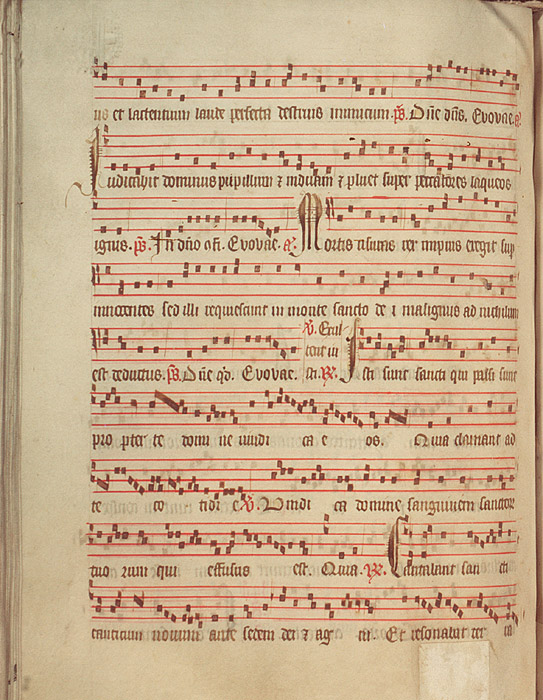 us et lactentium laude perfecta destruis inimicum. ps. Dne dns. Evovae. a.
Iudicabit dominus pupillum ⁊ viduam ⁊ pluet super peccatores laqueos
ignis. ps. In dno cfi. Evovae. a. Mortis tisuras ter impius eregit sup
innocentes sed illi requiescunt in monte sancto de i malignus ad nichilum
est deductus. ps. Dne qs. Evovae. V. Exul tent iu sti. R. Isti sunt sancti qui passi sunt
pro pter te domi ne vindi ca os. Quia clamant ad
te co tidi e. V. Vindi ca domine sanguinem sanctor
tuo rum qui effusus est. Quia. R. Cantabant san cti
canticum novum ante sedem dei ⁊ ag ni. Et resonabat ter ra